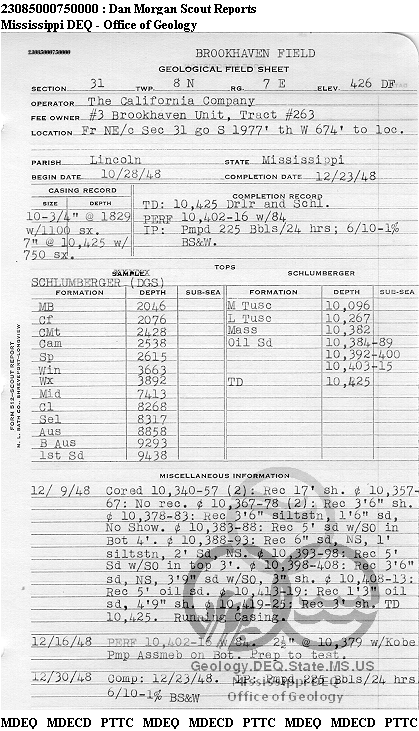 23085000750000 : Dan Morgan Scout Reports
Mississippi DEQ - Office of Geology
23085000750000
BROOKHAVEN FIELD
GEOLOGICAL FIELD SHEET
SECTION 31 TWP. 8 N RG. 7 E ELEV. 426 DF
OPERATOR The California Company
FEE OWNER #3 Brookhaven Unit, Tract #263
LOCATION Fr NE/c Sec 31 go S 1977' th W 674' to loc.
PARISH Lincoln STATE Mississippi
BEGIN DATE 10/28/48 COMPLETION DATE 12/23/48
CASING RECORD COMPLETION RECORD
SIZE DEPTH TD: 10,425 Drlr and Schl.
10-3/4" @ 1829 PERF 10,402-16 w/84
w/1100 sx. IP: Pmpd 225 Bbls/24 hrs; 6/10-1%
7" @ 10,425 w/ BS&W.
750 sx.
TOPS
SAMPLE SCHLUMBERGER
SCHLUMBERGER (DGS)
FORMATION DEPTH SUB-SEA FORMATION DEPTH SUB-SEA
MB 2046 M Tusc 10,096
Cf 2076 L Tusc 10,267
CMt 2428 Mass 10,382
Cam 2538 Oil Sd 10,384-89
Sp 2615 10,392-400
Win 3663 10,403-15
Wx 3892 TD 10,425
Mid 7413
Cl 8268
Sel 8317
Aus 8858
B Aus 9293
1st Sd 9438
FORM 512—SCOUT REPORT
M. L. BATH CO., SHREVEPORT-LONGVIEW
MISCELLANEOUS INFORMATION
12/ 9/48 Cored 10,340-57 (2): Rec 17' sh. ¢ 10,357-
67: No rec. ¢ 10,367-78 (2): Rec 3'6" sh.
¢ 10,378-83: Rec 3'6" siltstn, 1'6" sd,
No Show. ¢ 10,383-88: Rec 5' sd w/SO in
Bot 4'. ¢ 10,388-93: Rec 6" sd, NS, 1'
siltstn, 2' Sd, NS. ¢ 10,393-98: Rec 5'
Sd w/SO in top 3'. ¢ 10,398-408: Rec 3'6"
sd, NS, 3'9" sd w/SO, 3" sh. ¢ 10,408-13:
Rec 5' oil sd. ¢ 10,413-19: Rec 1'3" oil
sd, 4'9" sh. ¢ 10,419-25: Rec 3' sh. TD
10,425. Running Casing.
12/16/48 PERF 10,402-16 w/84. 2½" @ 10,379 w/Kobe
Pmp Assmeb on Bot. Prep to test.
Geology.DEQ.State.MS.US
12/30/48 Comp: 12/23/48. IP: Pmpd 225 Bbls/24 hrs
MississippiDEQ
6/10-1% BS&W
Office of Geology
MDEQ MDECD PTTC MDEQ MDECD PTTC MDEQ MDECD PTTC